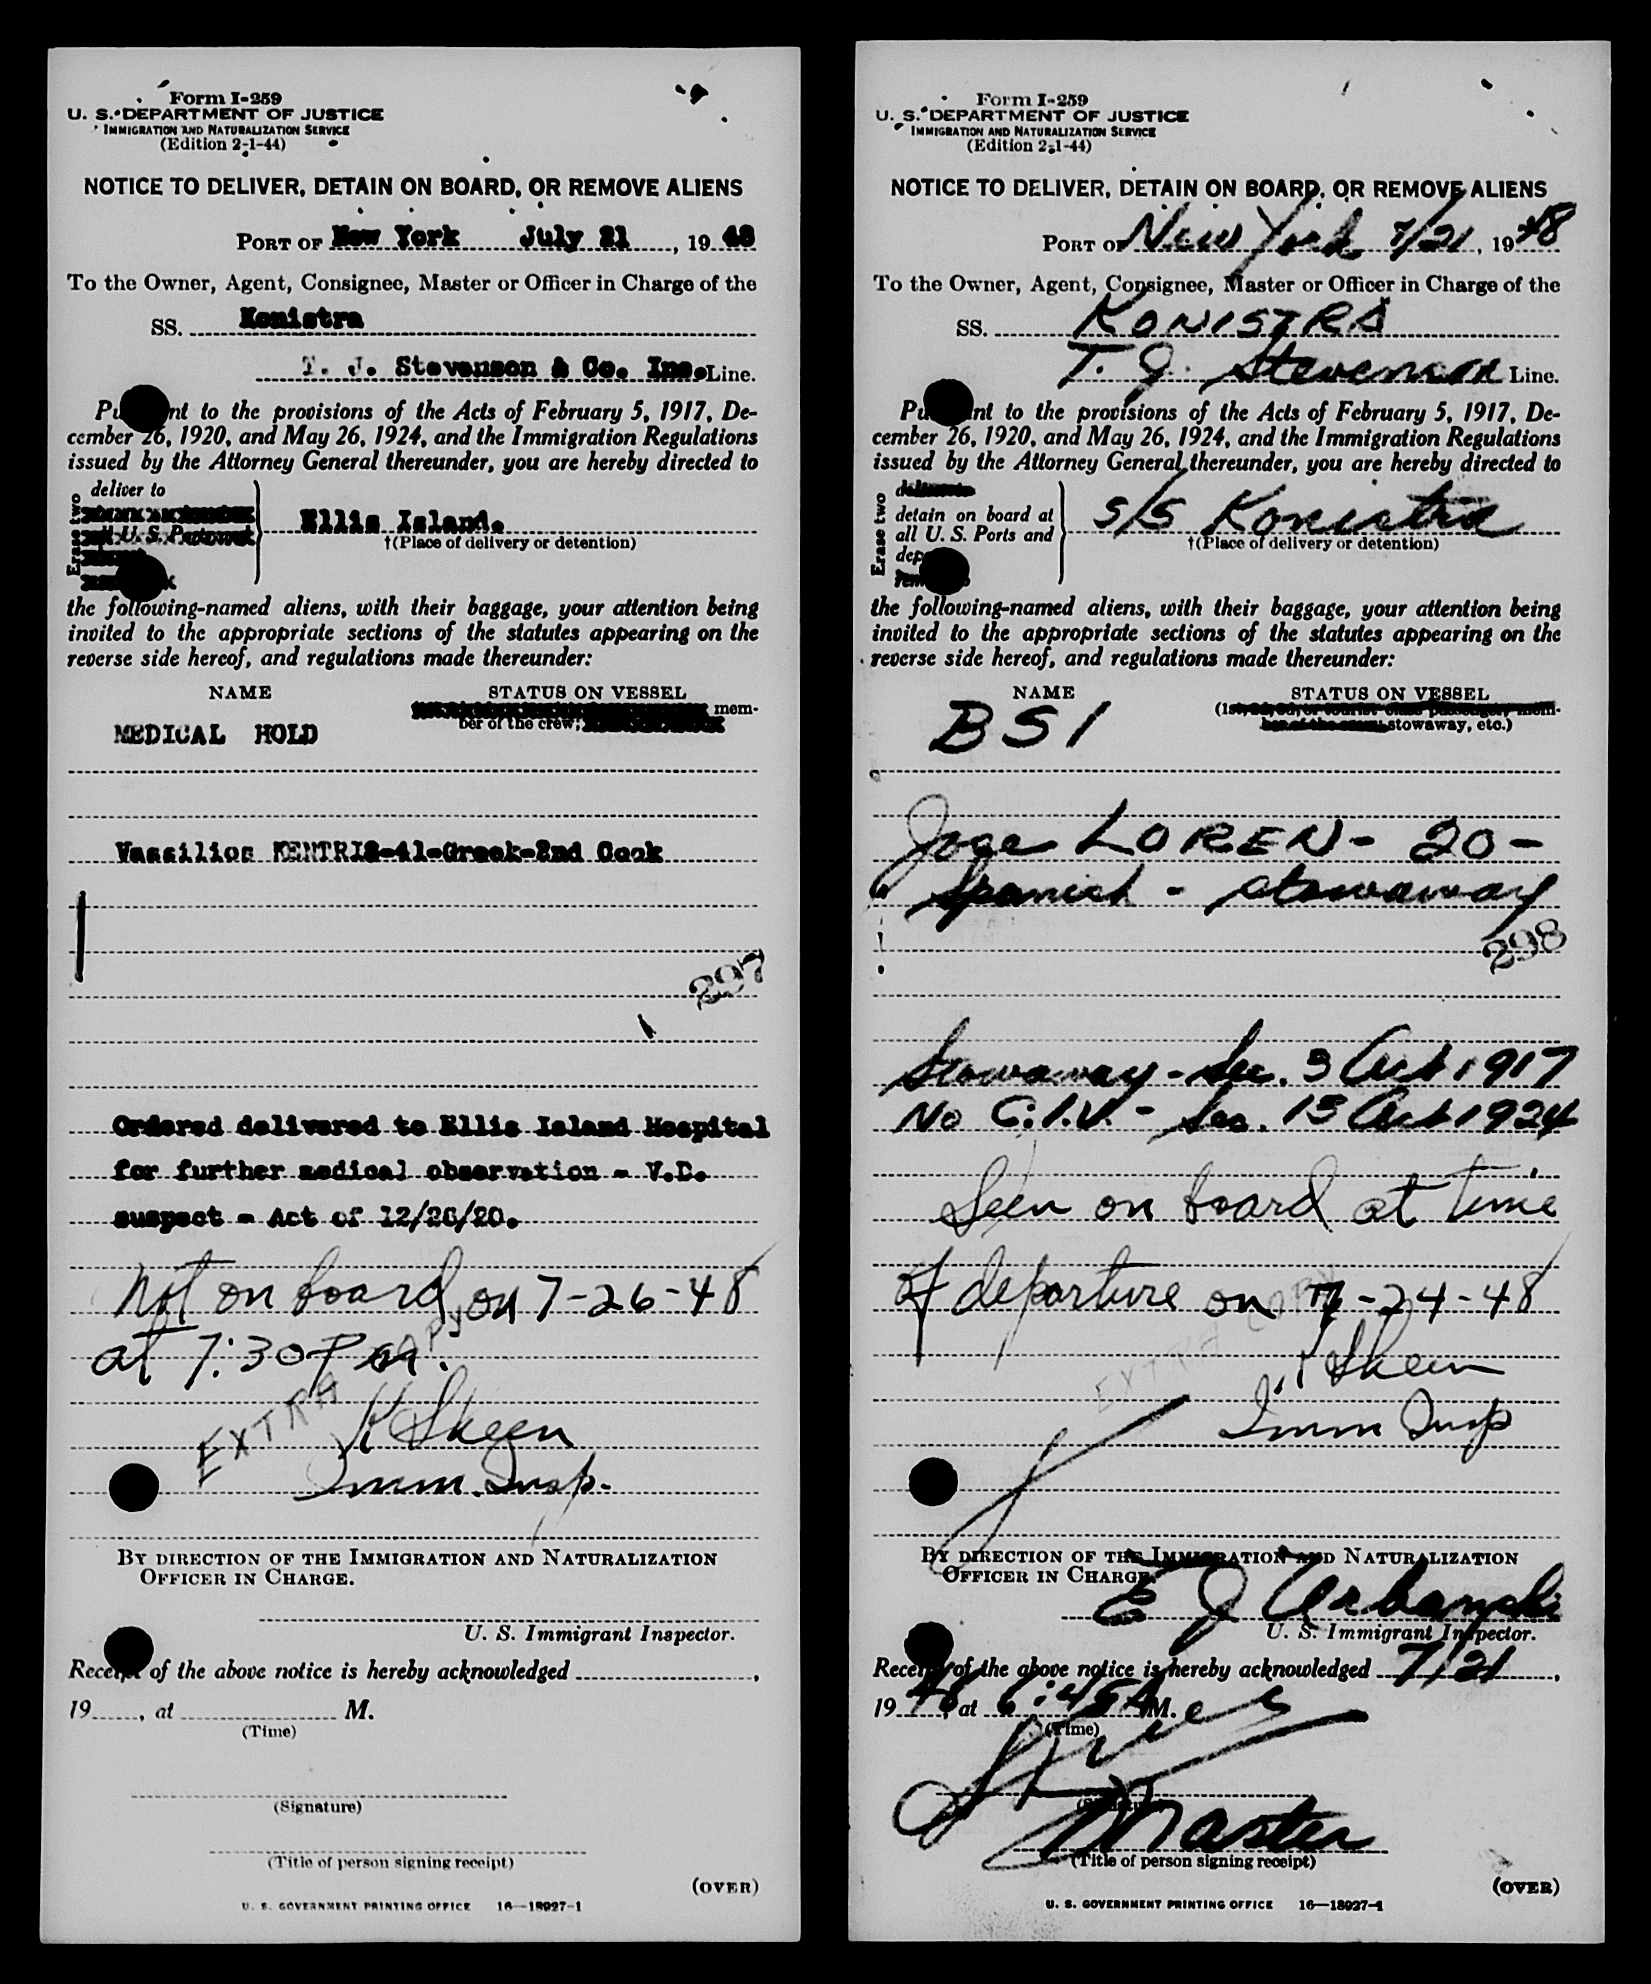 Form I-259
U. S. DEPARTMENT OF JUSTICE
IMMIGRATION AND NATURALIZATION SERVICE
(Edition 2-1-44)
NOTICE TO DELIVER, DETAIN ON BOARD, OR REMOVE ALIENS
PORT OF New York July 21, 1948
To the Owner, Agent, Consignee, Master or Officer in Charge of the
SS. Konistra
T. J. Stevenson & Co. Inc. Line.
Pu nt to the provisions of the Acts of February 5, 1917, De-
cember 26, 1920, and May 26, 1924, and the Immigration Regulations
issued by the Attorney General thereunder, you are hereby directed to
Erase two
deliver to
Ellis Island.
†(Place of delivery or detention)
the following-named aliens, with their baggage, your attention being
invited to the appropriate sections of the statutes appearing on the
reverse side hereof, and regulations made thereunder:
NAME STATUS ON VESSEL
mem-
ber of the crew;
MEDICAL HOLD
Vassilios KENTRIS-41-Greek-2nd Cook
297
Ordered delivered to Ellis Island Hospital
for further medical observation - V.D.
suspect - Act of 12/26/20.
Not on board on 7-26-48
at 7:30 P m.
EXTRA COPY
K Skeen
Imm. Insp.
BY DIRECTION OF THE IMMIGRATION AND NATURALIZATION
OFFICER IN CHARGE.
U. S. Immigrant Inspector.
Receipt of the above notice is hereby acknowledged ,
19 , at M.
(Time)
(Signature)
(Title of person signing receipt)
(OVER)
U. S. GOVERNMENT PRINTING OFFICE 16—18927-1
Form I-259
U. S. DEPARTMENT OF JUSTICE
IMMIGRATION AND NATURALIZATION SERVICE
(Edition 2-1-44)
NOTICE TO DELIVER, DETAIN ON BOARD, OR REMOVE ALIENS
PORT OF New York 7/21, 1948
To the Owner, Agent, Consignee, Master or Officer in Charge of the
SS. KONISTRA
T. J. Stevenson Line.
Pu nt to the provisions of the Acts of February 5, 1917, De-
cember 26, 1920, and May 26, 1924, and the Immigration Regulations
issued by the Attorney General thereunder, you are hereby directed to
Erase two
detain on board at
all U. S. Ports and
dep
S/S Konistra
†(Place of delivery or detention)
the following-named aliens, with their baggage, your attention being
invited to the appropriate sections of the statutes appearing on the
reverse side hereof, and regulations made thereunder:
NAME STATUS ON VESSEL
stowaway, etc.)
BSI
Jose LOREN - 20 -
Spanish - stowaway
298
Stowaway - Sec. 3 Act 1917
No C.I.V. - Sec. 13 Act 1924
Seen on board at time
of departure on 7-24-48
EXTRA COPY
K Skeen
Imm Insp
BY DIRECTION OF THE IMMIGRATION AND NATURALIZATION
OFFICER IN CHARGE.
E J Urbanski
U. S. Immigrant Inspector.
Receipt of the above notice is hereby acknowledged 7/21,
1948, at 6:45 A M.
(Time)
Master
(Title of person signing receipt)
(OVER)
U. S. GOVERNMENT PRINTING OFFICE 16—18927-1